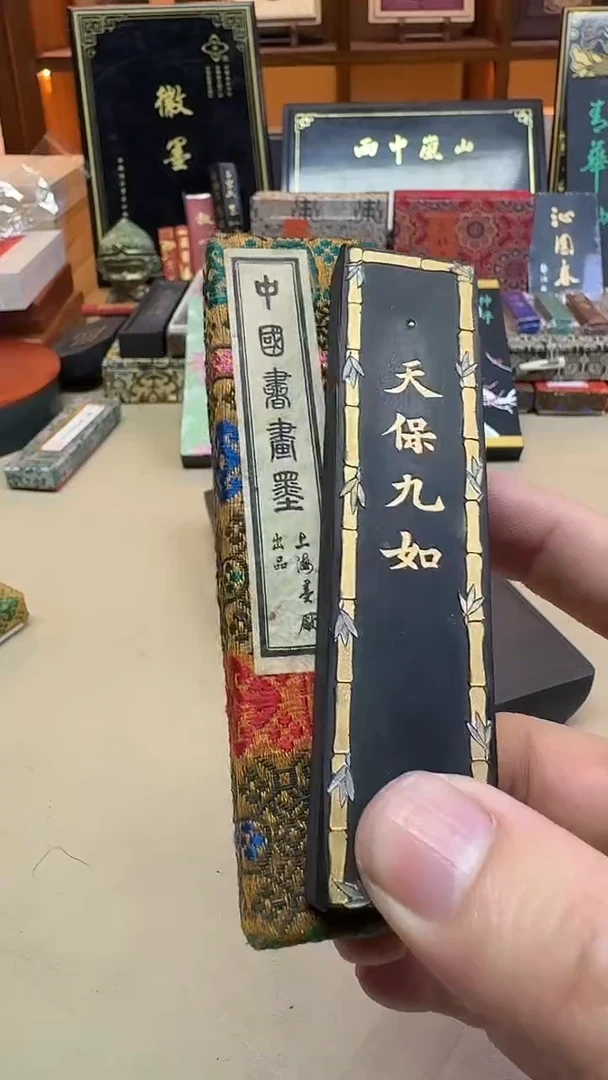 徽墨
雨中嵐山
清華
沁園春
中國書畫墨
上海墨廠
出品
天保九如